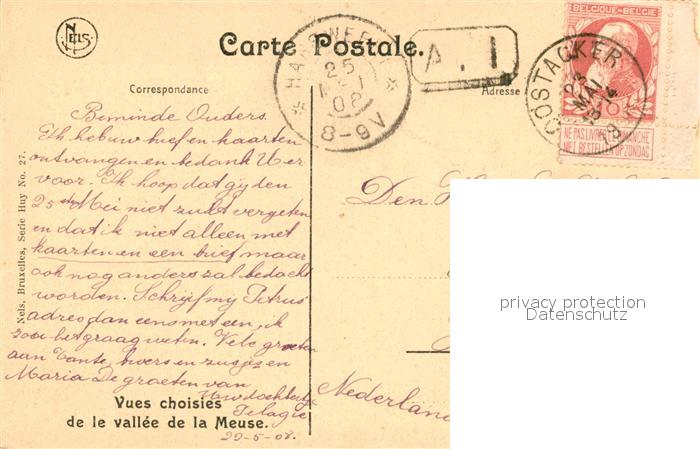 NELS
Carte Postale.
BELGIQUE-BELGIË
A. I
25
08
8-9V
OOSTACKER
23
MAI
NE PAS LIVRER LE DIMANCHE
NIET BESTELLEN OP ZONDAG
Correspondance
Adresse
Beminde Ouders.
Ik heb uw brief en kaarten
ontvangen en bedank U er
voor. Ik hoop dat gij den
25sten Mei niet zult vergeten
en dat ik niet alleen met
kaarten en een brief maar
ook nog anders zal bedacht
worden. Schrijf mij Petrus'
adres dan eens met een, ik
zou het graag weten. Vele groeten
aan Tante, broers en zusjes en
Maria De groeten van
Uw dochtertje
Pelagie
29-5-08.
Den
Nederland
Vues choisies
de le vallée de la Meuse.
Nels, Bruxelles, Serie Huy No. 27.
privacy protection
Datenschutz